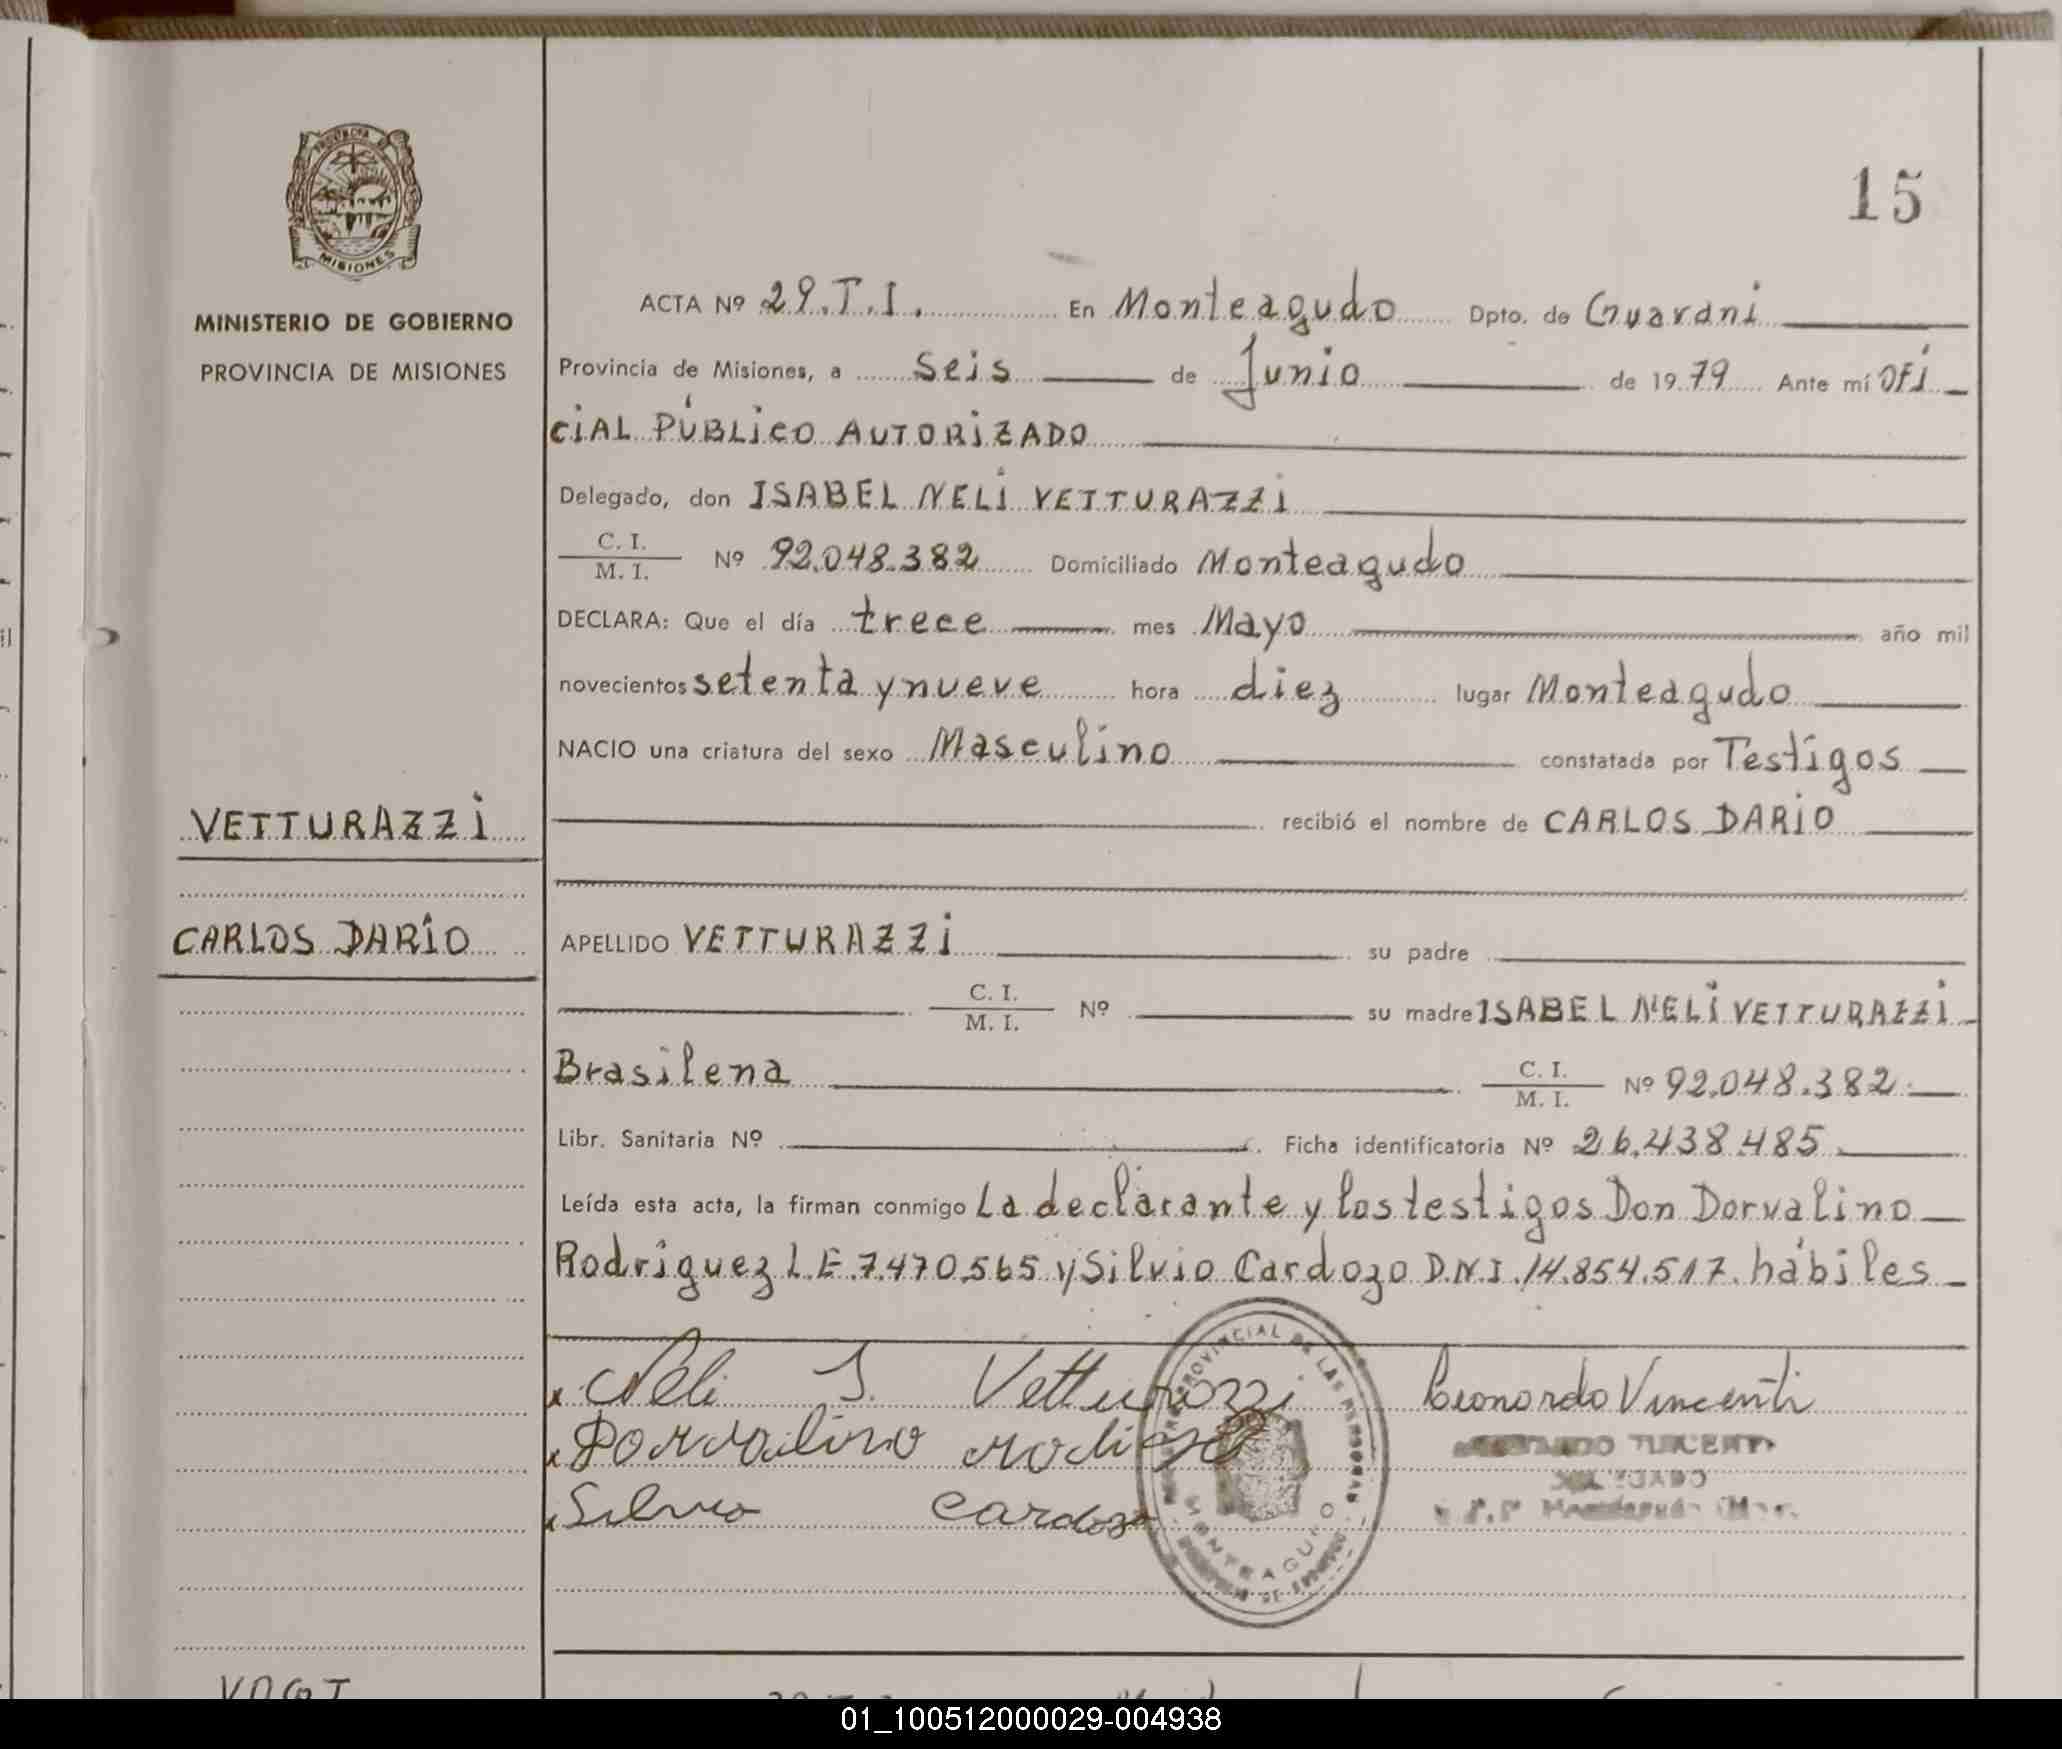 PROVINCIA DE
MISIONES
MINISTERIO DE GOBIERNO
PROVINCIA DE MISIONES
VETTURAZZI
CARLOS DARIO
15
ACTA Nº 29.T.I. En Monteagudo Dpto. de Guarani
Provincia de Misiones, a seis de Junio de 1979 Ante mí OFI
CIAL PÚBLICO AUTORIZADO
Delegado, don ISABEL NELI VETTURAZZI
C. I.
M. I. Nº 92.048.382 Domiciliado Monteagudo
DECLARA: Que el día trece mes Mayo año mil
novecientos setenta y nueve hora diez lugar Monteagudo
NACIO una criatura del sexo Masculino constatada por Testigos
recibió el nombre de CARLOS DARIO
APELLIDO VETTURAZZI su padre
C. I.
M. I. Nº su madre ISABEL NELI VETTURAZZI
Brasilena C. I.
M. I. Nº 92.048.382
Libr. Sanitaria Nº Ficha identificatoria Nº 26.438.485
Leída esta acta, la firman conmigo La declarante y los testigos Don Dorvalino
Rodriguez L.E. 7.470.565 y Silvio Cardozo D.N.I. 14.854.517. hábiles
Neli I. Vetturazzi
Leonardo Vincenti
Dorvalino
Silvio Cardozo
PROVINCIAL DE LAS PERSONAS
MONTEAGUDO
VOGT
01_100512000029-004938